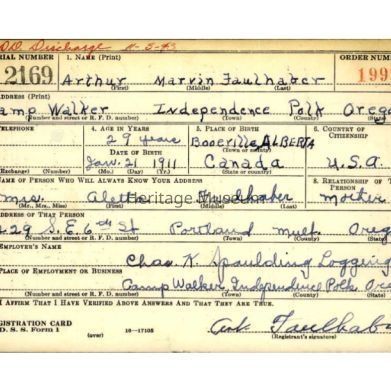 D.O. Discharge 11-5-43
ERIAL NUMBER 1. NAME (Print) ORDER NUM
2169 Arthur Marvin Faulhaber 199
(First) (Middle) (Last)
ADDRESS (Print)
amp Walker Independence Polk Orego
(Number and street or R. F. D. number) (Town) (County) (State)
TELEPHONE 4. AGE IN YEARS 5. PLACE OF BIRTH 6. COUNTRY OF CITIZENSHIP
29 years ALBERTA
DATE OF BIRTH (Town or county)
Jan. 21 1911 Canada U.S.A.
(Exchange) (Number) (Mo.) (Day) (Yr.) (State or country)
NAME OF PERSON WHO WILL ALWAYS KNOW YOUR ADDRESS 8. RELATIONSHIP OF T
Mrs. Faulhaber mother
(Mr., Mrs., Miss) (First) (Middle) (Last)
Heritage Museum
ADDRESS OF THAT PERSON
429 S.E. 6th St Portland Mult. Oreg
(Number and street or R. F. D. number) (Town) (County) (State)
EMPLOYER'S NAME
Chas. K. Spaulding Logging
PLACE OF EMPLOYMENT OR BUSINESS
Camp Walker, Independence Polk Ore
(Number and street or R. F. D. number) (Town) (County) (State)
I AFFIRM THAT I HAVE VERIFIED ABOVE ANSWERS AND THAT THEY ARE TRUE.
REGISTRATION CARD
D. S. S. Form 1 16—17105 Art Faulhabe
(Registrant's signature)